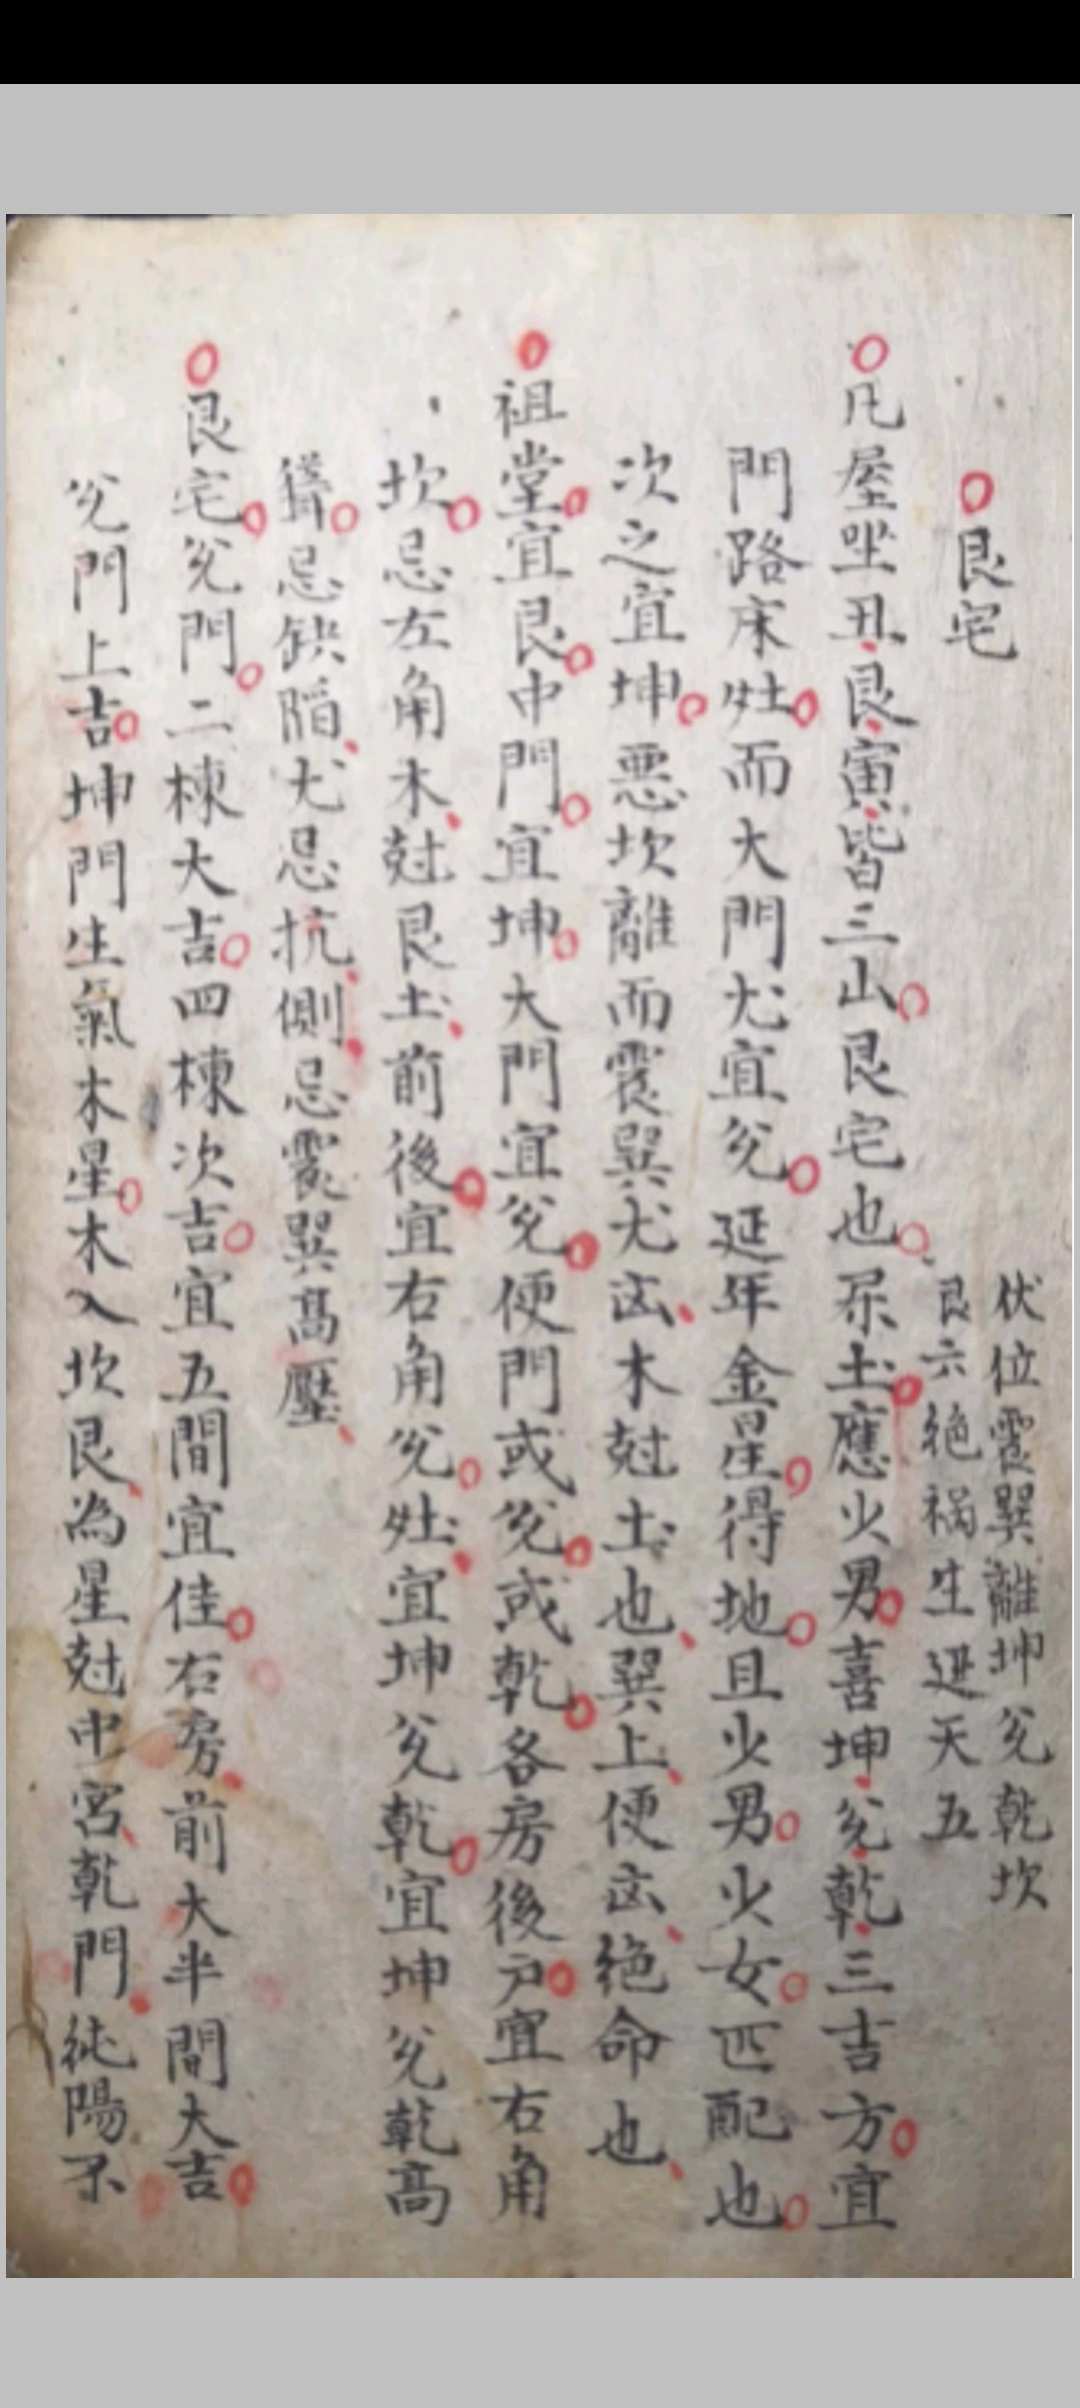 艮宅
伏位震巽離坤兊乾坎
艮六絶禍生延天五
凡屋坐丑艮寅皆三山艮宅也屬土應少男喜坤兊乾三吉方宜
門路床灶而大門尤宜兊延年金星得地且少男少女匹配也
次之宜坤惡坎離而震巽尤凶木尅土也巽上便凶絶命也
祖堂宜艮中門宜坤大門宜兊便門或兊或乾各房後户宜右角
坎忌左角木尅艮土前後宜右角兊灶宜坤兊乾宜坤兊乾高
聳忌缺陷尤忌抗側忌震巽高壓
艮宅兊門二棟大吉四棟次吉宜五間宜佳右房前大半間大吉
兊門上吉坤門生氣木星木入坎艮為星尅中宮乾門純陽不